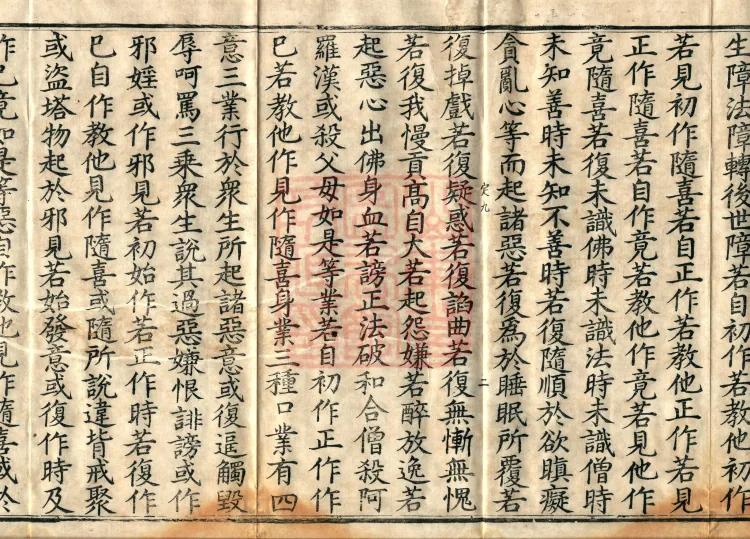 生障法障轉後世障若自初作若教他作
若見初作隨喜若自正作若教他正作若見
正作隨喜若自作竟若教他作竟若見他作
竟隨喜若復未識佛時未識法時未識僧時
未知善時未知不善時若復隨順於欲瞋癡
貪亂心等而起諸惡若復為於睡眠所覆若
定九 二
復掉戲若復疑惑若復諂曲若復無慚無愧
若復我慢貢高自大若起怨嫌若醉放逸若
起惡心出佛身血若謗正法破和合僧殺阿
羅漢或殺父母如是等業若自初作正作作
已若教他作見作隨喜身業三種口業有四
意三業行於衆生所起諸惡意或復逼觸毀
辱呵罵三乘衆生說其過惡嫌恨誹謗或作
邪婬或作邪見若初始作若正作時若復作
已自作教他見作隨喜或隨所說違背戒聚
或盜塔物起於邪見若始發意或復作時及
作已竟如是等惡自作教他見作隨喜或於